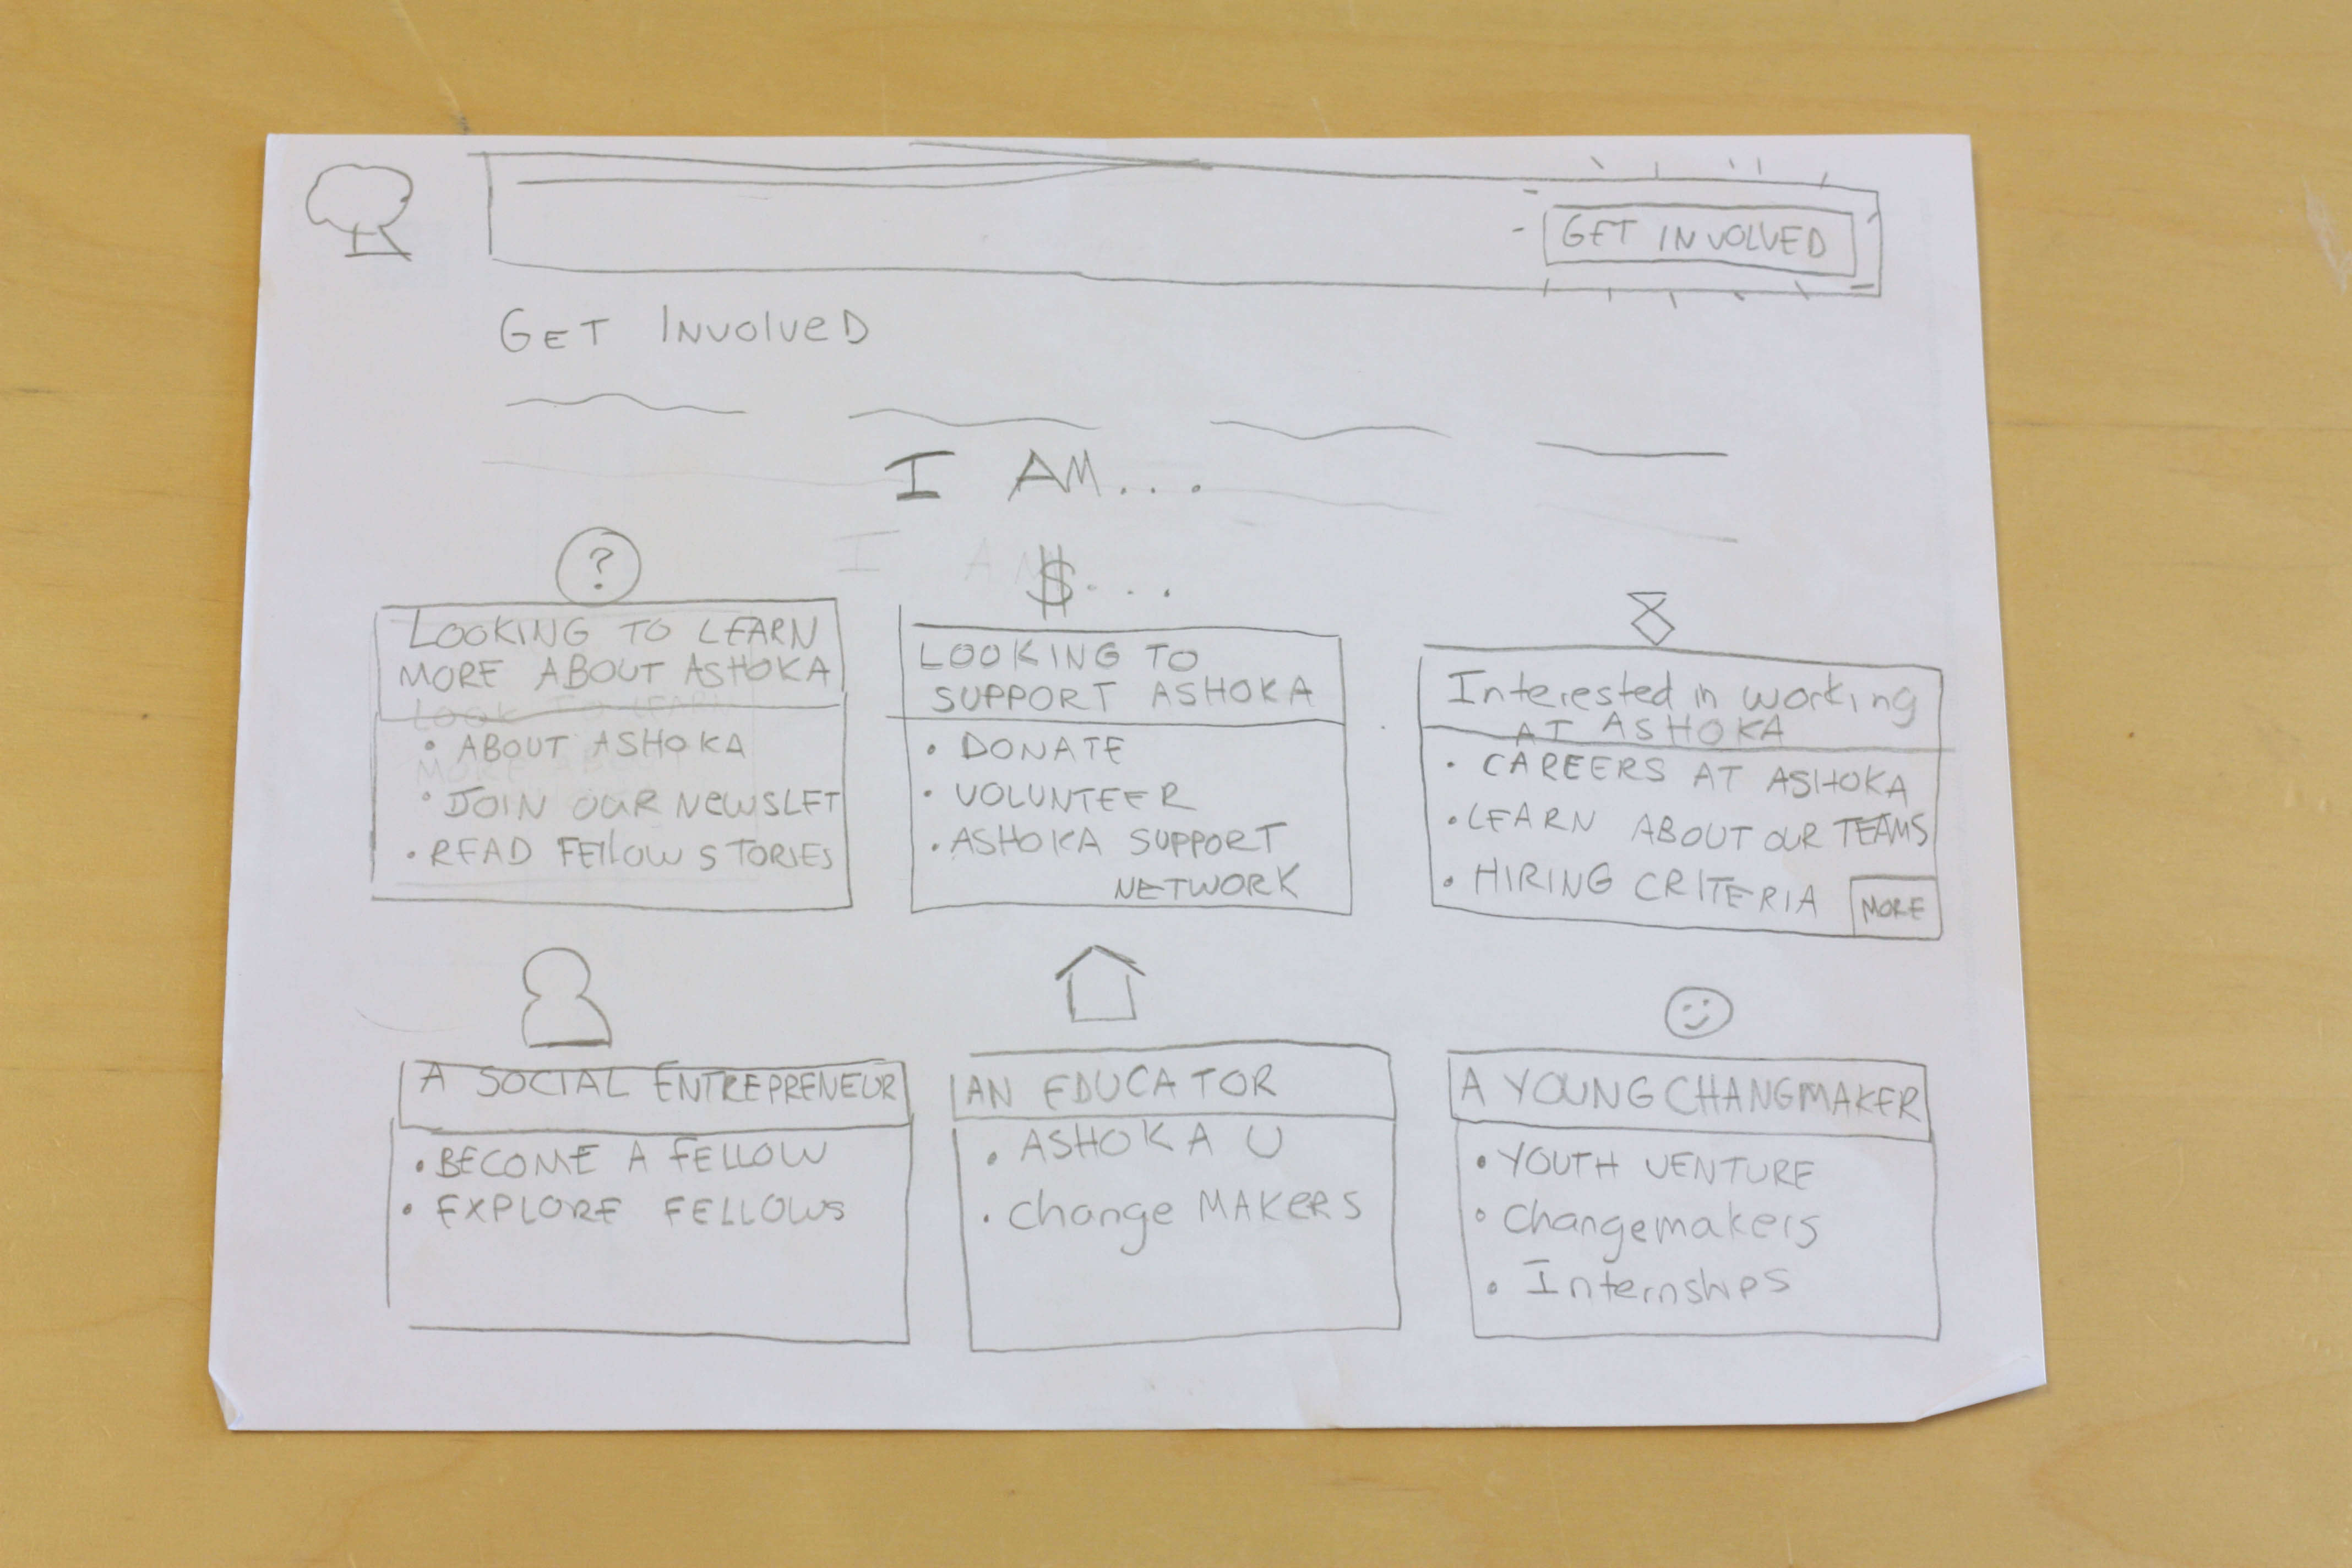 GET INVOLVED
GET INVOLVED
I AM...
?
$...
LOOKING TO LEARN
MORE ABOUT ASHOKA
• ABOUT ASHOKA
• JOIN OUR NEWSLET
• READ FELLOW STORIES
LOOKING TO
SUPPORT ASHOKA
• DONATE
• VOLUNTEER
• ASHOKA SUPPORT
NETWORK
Interested in working
AT ASHOKA
• CAREERS AT ASHOKA
• LEARN ABOUT OUR TEAMS
• HIRING CRITERIA
MORE
A SOCIAL ENTREPRENEUR
• BECOME A FELLOW
• EXPLORE FELLOWS
AN EDUCATOR
• ASHOKA U
• change MAKERS
A YOUNG CHANGMAKER
• YOUTH VENTURE
• Changemakers
• Internships